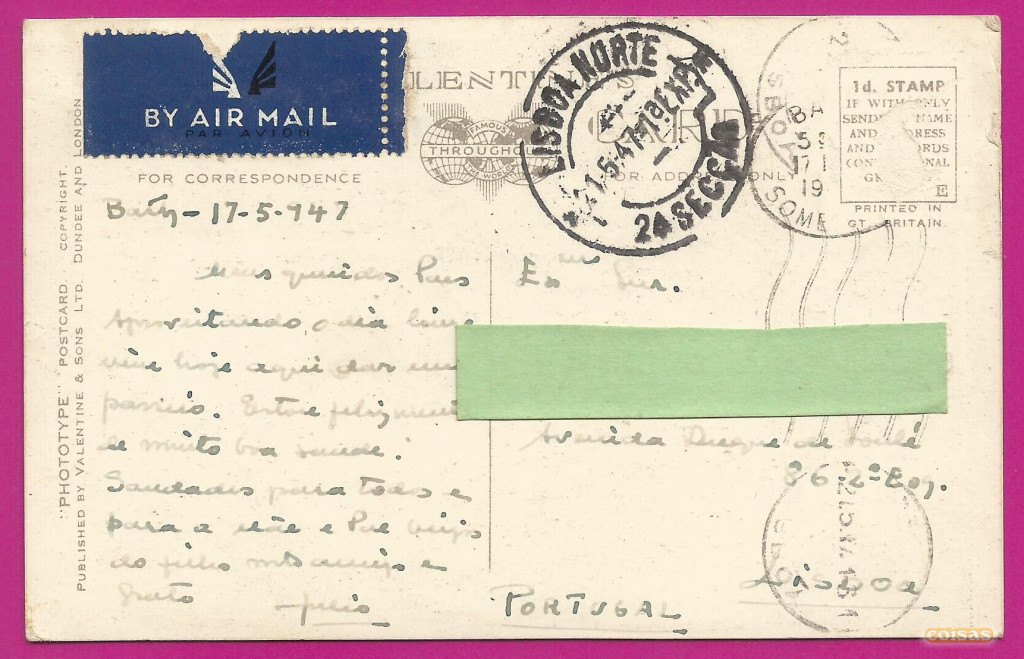 BY AIR MAIL
PAR AVION
FOR CORRESPONDENCE
FAMOUS
THROUGHO
THE WORLD
FOR ADDRESS ONLY
LISBOA NORTE
21-5-47-19
24 SECÇÃO
1d. STAMP
IF WITH ONLY
SENDE NAME
AND DRESS
AND RDS
CON NAL
E
PRINTED IN
GT. BRITAIN.
BA
17
19
SOME
"PHOTOTYPE" POSTCARD. COPYRIGHT.
PUBLISHED BY VALENTINE & SONS LTD. DUNDEE AND LONDON
Bath - 17-5-947
Meus queridos Pais
Aproveitando o dia
vim hoje aqui dar um
passeio. Estou
de muito boa saude.
Saudades para todos e
para a Mãe e Pae
do filho mto amigo e
grato
Julio
Exmo Snr.
Avenida Duque de Loulé
86 2º Esq.
Lisboa
PORTUGAL
coisas